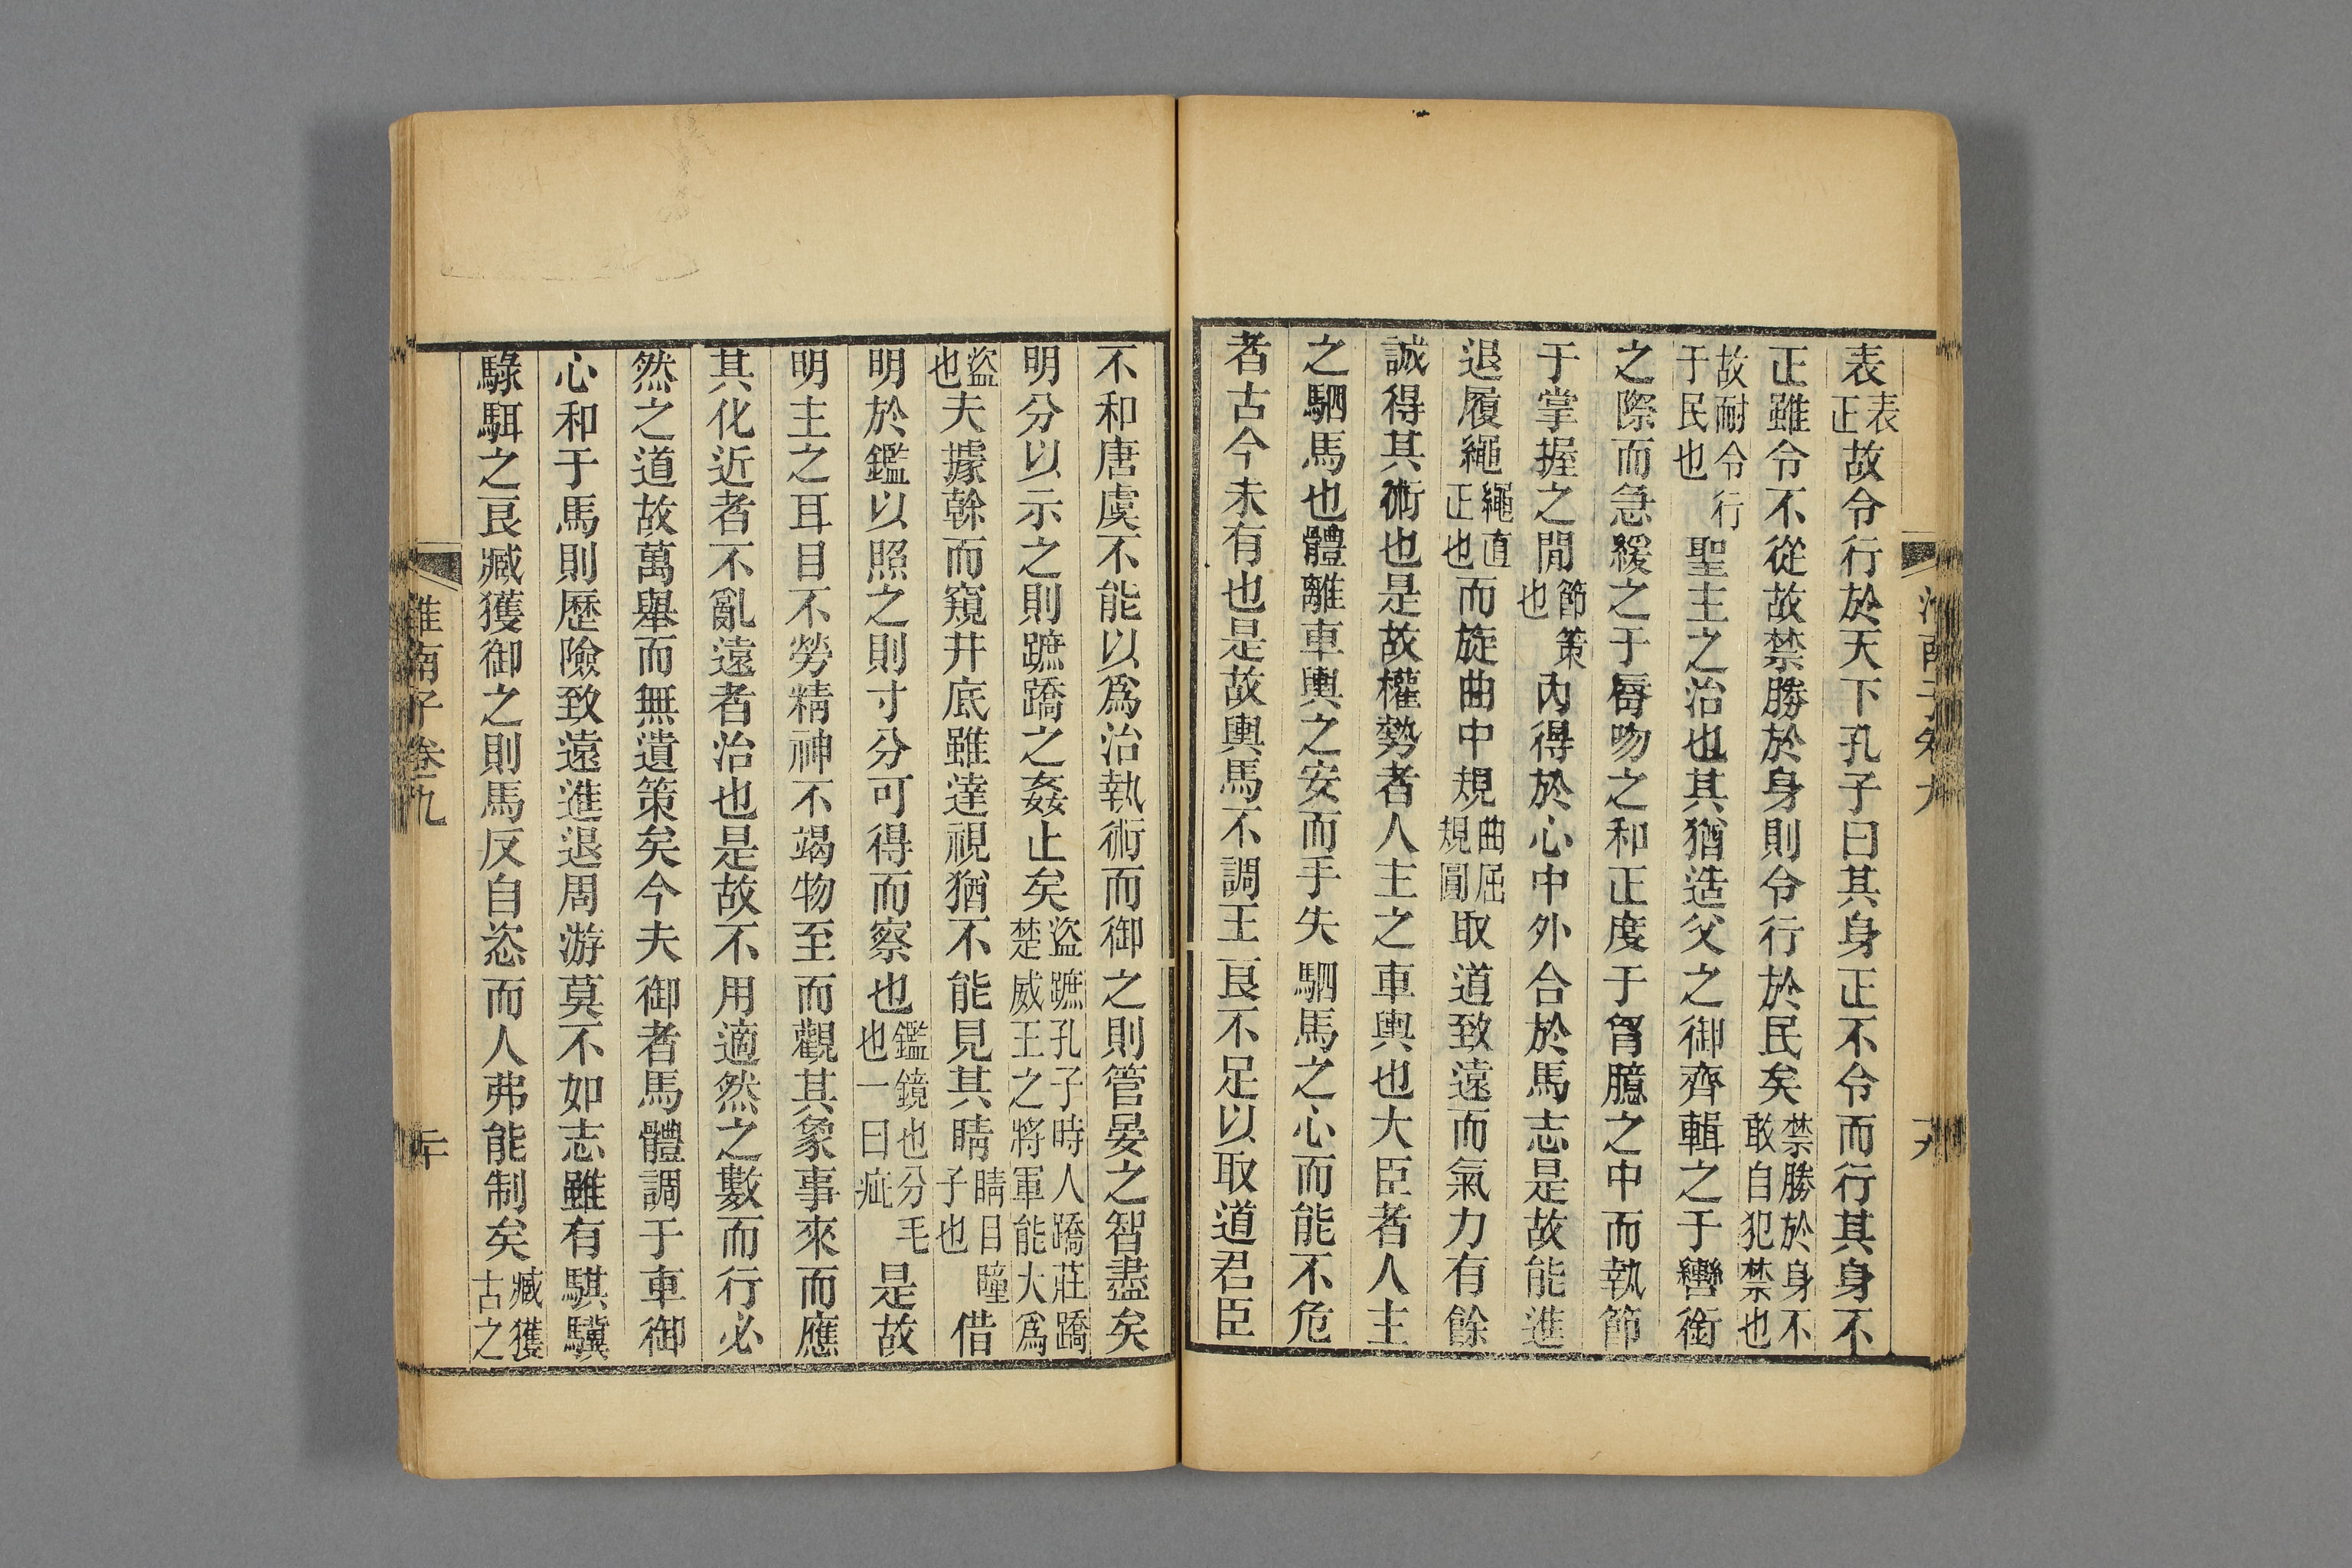 表表正故令行於天下孔子曰其身正不令而行其身不
正雖令不從故禁勝於身則令行於民矣禁勝於身不敢自犯禁也
故耐令行于民也聖主之治也其猶造父之御齊輯之于轡銜
之際而急緩之于脣吻之和正度于胷臆之中而執節
于掌握之閒節策也內得於心中外合於馬志是故能進
退履繩繩直正也而旋曲中規曲屈規圓取道致遠而氣力有餘
誠得其術也是故權勢者人主之車輿也大臣者人主
之駟馬也體離車輿之安而手失駟馬之心而能不危
者古今未有也是故輿馬不調王良不足以取道君臣
不和唐虞不能以爲治執術而御之則管晏之智盡矣
明分以示之則蹠蹻之姦止矣盜蹠孔子時人蹻莊蹻楚威王之將軍能大爲
盜也夫據榦而窺井底雖達視猶不能見其睛睛目瞳子也借
明於鑑以照之則寸分可得而察也鑑鏡也分毛也一曰疵是故
明主之耳目不勞精神不竭物至而觀其象事來而應
其化近者不亂遠者治也是故不用適然之數而行必
然之道故萬舉而無遺策矣今夫御者馬體調于車御
心和于馬則歷險致遠進退周游莫不如志雖有騏驥
騄駬之良臧獲御之則馬反自恣而人弗能制矣臧獲古之
淮南子卷九
十九
淮南子卷九
二十